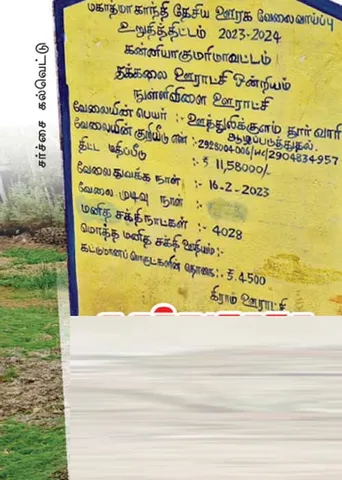 சர்ச்சை கல்வெட்டு
மகாத்மாகாந்தி தேசிய ஊரக வேலைவாய்ப்பு
உறுதித்திட்டம் 2023-2024
கன்னியாகுமரிமாவட்டம்
தக்கலை ஊராட்சி ஒன்றியம்
நுள்ளிவிளை ஊராட்சி
வேலையின் பெயர் :- ஊத்துலிக்குளம் தூர் வாரி
ஆழப்படுத்துதல்.
வேலையின் குறியீடு எண் :- 2928004006/WC/2904834957
திட்ட மதிப்பீடு :- ₹ 11,58000/-
வேலை துவக்க நாள் :- 16-2-2023
வேலை முடிவு நாள் :-
மனித சக்திநாட்கள் :- 4028
மொத்த மனித சக்தி ஊதியம் :-
கட்டுமானப் பொருட்களின் தொகை :- ₹. 4.500
கிராம ஊராட்சி